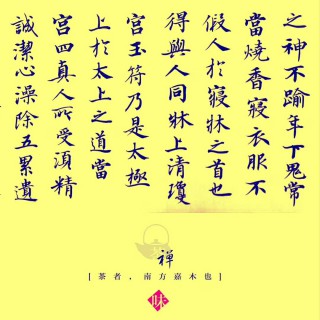 之神不踰年下鬼常
當燒香寢衣服不
假人於寢牀之首也
得與人同牀上清瓊
宮玉符乃是太極
上於太上之道當
宮四真人所受須精
誠潔心澡除五累遺
禅
[ 茶者，南方嘉木也 ]
味